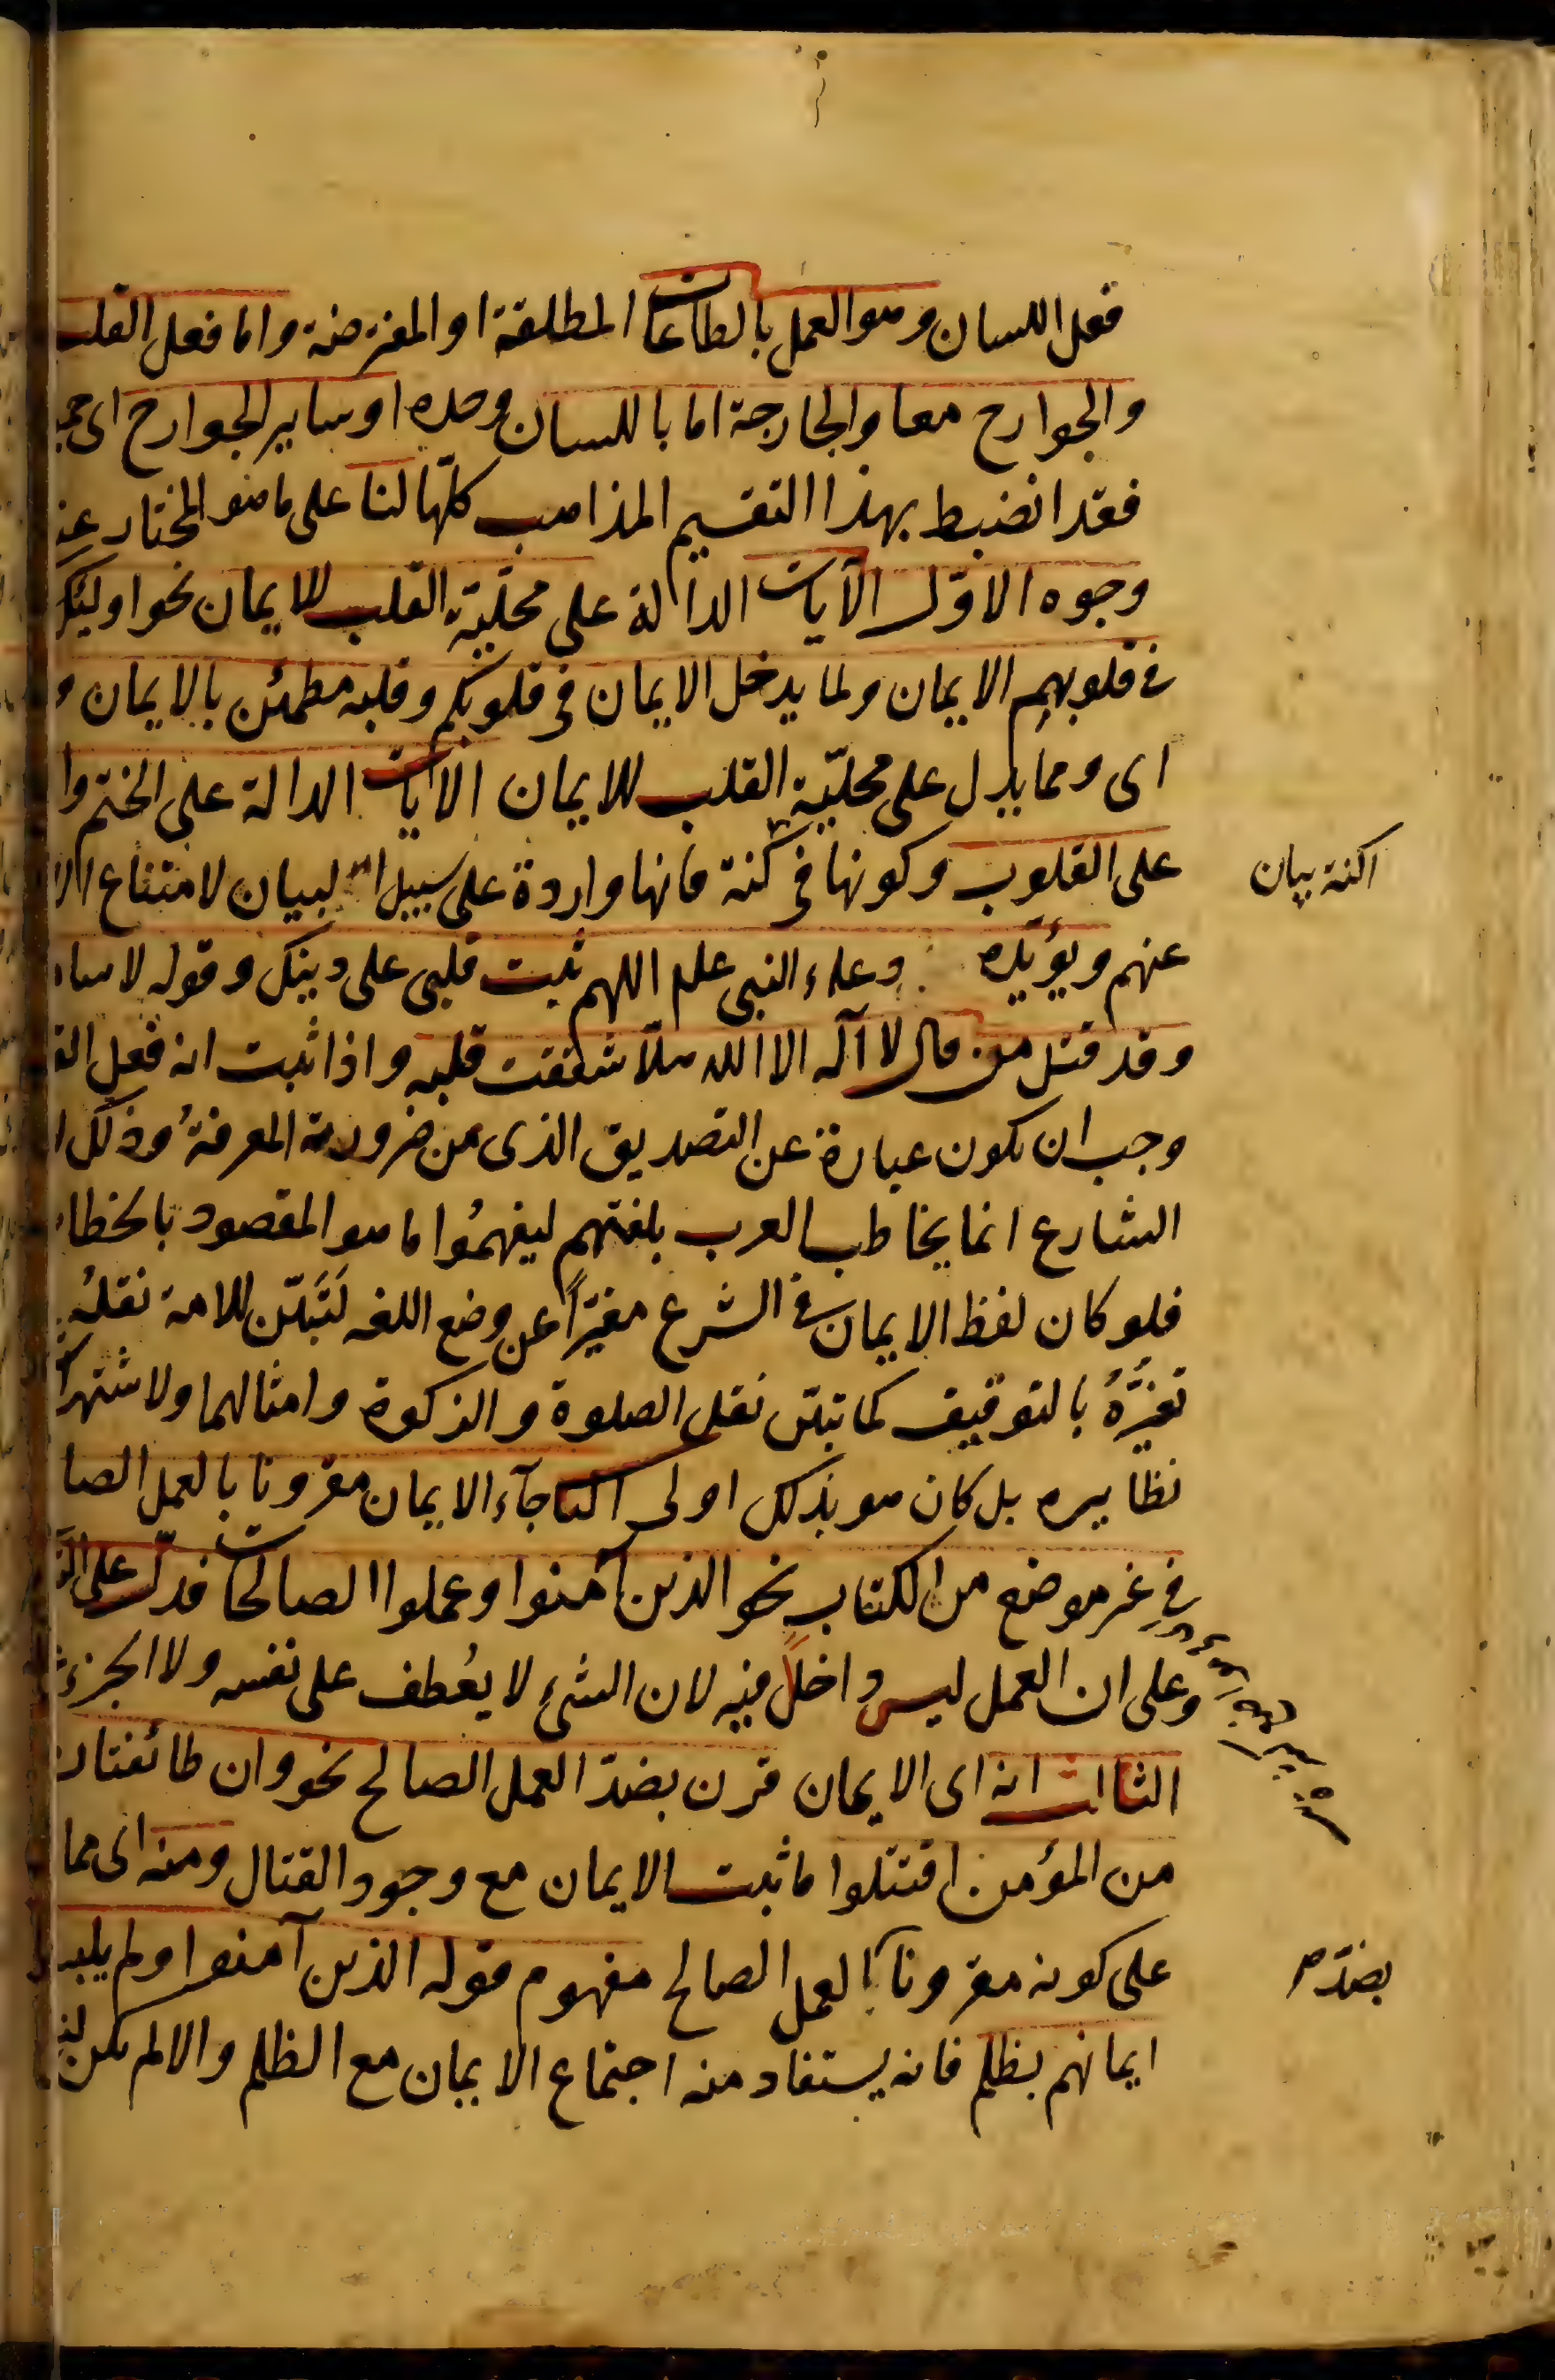 فعل اللسان وهو العمل بالطاعات المطلقة او المفترضة واما فعل القلب
والجوارح معا والجارحة اما باللسان وحده او ساير الجوارح اى
فقد انضبط بهذا التقسيم المذاهب كلّها لنا على ما هو المختار
وجوه الاوّل الآيات الدالة على محلّيّة القلب للايمان نحو اوليك
فى قلوبهم الايمان ولما يدخل الايمان فى قلوبكم وقلبه مطمئن بالايمان و
اى ومما يدل على محلّيّة القلب للايمان الآيات الدالة على الختم وا
على القلوب وكونها فى كنة فانها واردة على سبيل البيان لامتناع
اكنة بيان
عنهم ويؤيّده دعاء النبى علم اللهم ثبت قلبى على دينك وقوله لاسا
وقد قتل من قال لا آله الا الله هلّا شققت قلبه واذا ثبت انه فعل
وجب ان يكون عبارة عن التصديق الذى من ضرورية المعرفةُ وذلك
الشارع انما يخاطب العرب بلغتهم ليفهمُوا ما هو المقصود بالخطا
فلو كان لفظ الايمان فى الشرع مغيّراً عن وضع اللغه لَتَبيّن للامة نقلُه
تغيُّرُهُ بالتوقيف كما تبيّن نقل الصلوة والزكوة وامثالهما ولاشتهر
نظايره بل كان هو بذلك اولى جآء الايمان مقرونا بالعمل الصا
فى غير موضع من الكتاب نحو الذين آمنوا وعملوا الصالحات فدلّ على
وعلى ان العمل ليس داخلً فيه لان الشىء لا يعُطف على نفسه ولا الجزء
الثالث انه اى الايمان قرن بضدّ العمل الصالح نحو وان طائفتان
من المؤمنين اقتتلوا فاثبت الايمان مع وجود القتال ومنه اى مما
على كونه مقرونا بالعمل الصالح مفهوم قوله الذين آمنوا ولم يلب
بضدّ
ايمانهم بظلم فانه يستفاد منه اجتماع الايمان مع الظلم والا لم يكن